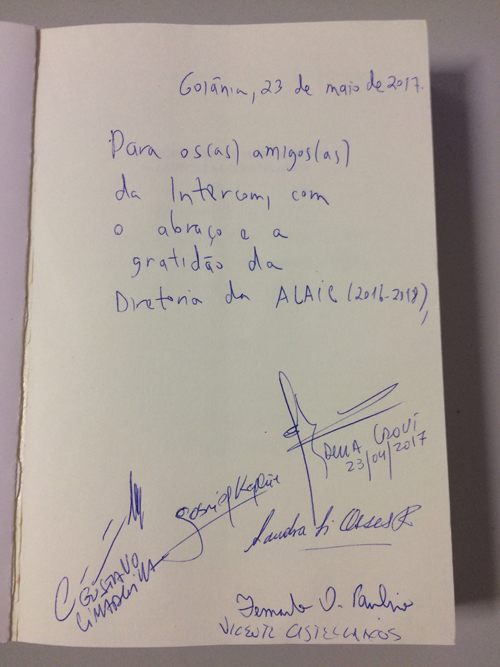 Goiânia, 23 de maio de 2017.
Para os(as) amigos(as)
da Intercom, com
o abraço e a
gratidão da
Diretoria da ALAIC (2016-2018),
Delia Crovi
23/04/2017
Gabriel Kaplún
Sandra Li Osses R
GUSTAVO
CIMADEVILLA
Fernando O. Paulino
VICENTE CASTELLANOS